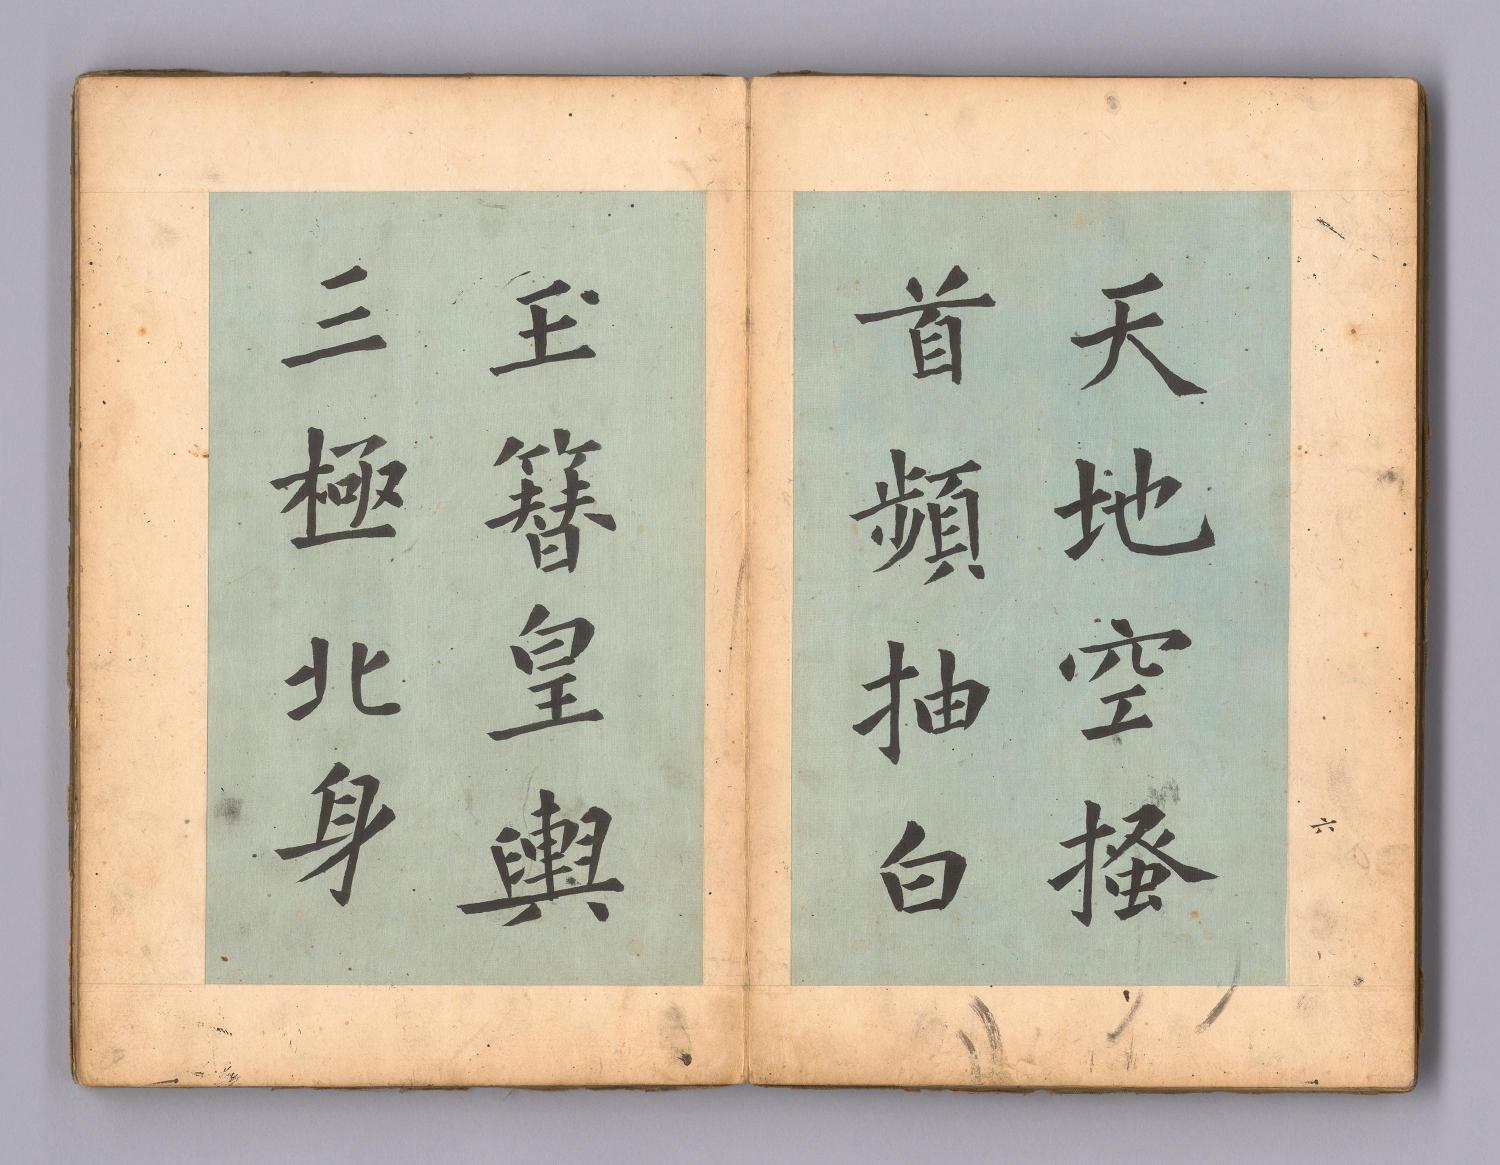 天地空搔
首頻抽白
玉簪皇輿
三極北身
六